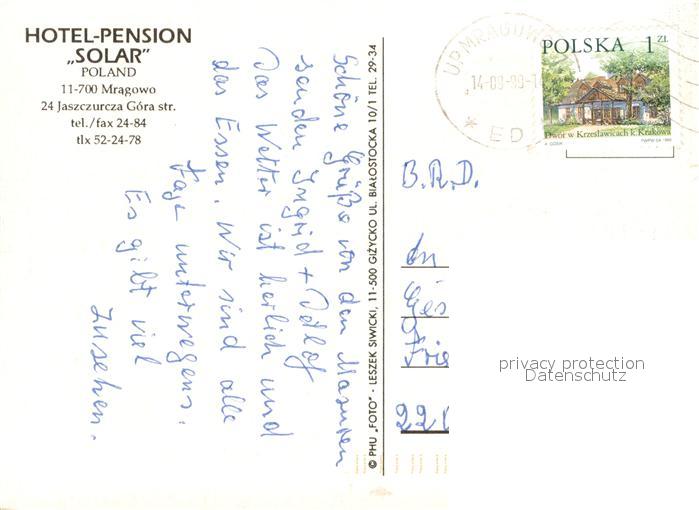 HOTEL-PENSION
„SOLAR”
POLAND
11-700 Mragowo
24 Jaszczurcza Góra str.
tel./fax 24-84
tlx 52-24-78
Schöne Grüße von den Masuren
senden Ingrid + Odlof
Das Wetter ist herlich und
das Essen. Wir sind alle
Tage unterwegens.
Es gibt viel
zusehen.
© PHU „FOTO” - LESZEK SIWICKI, 11-500 GIŻYCKO UL. BIAŁOSTOCKA 10/1 TEL. 29-34
U.P. MRĄGOWO
14-09-99
* ED
POLSKA 1 ZŁ
Dwór w Krzesławicach k. Krakowa
B.R.D.
An
Ges
Frie
22
privacy protection
Datenschutz